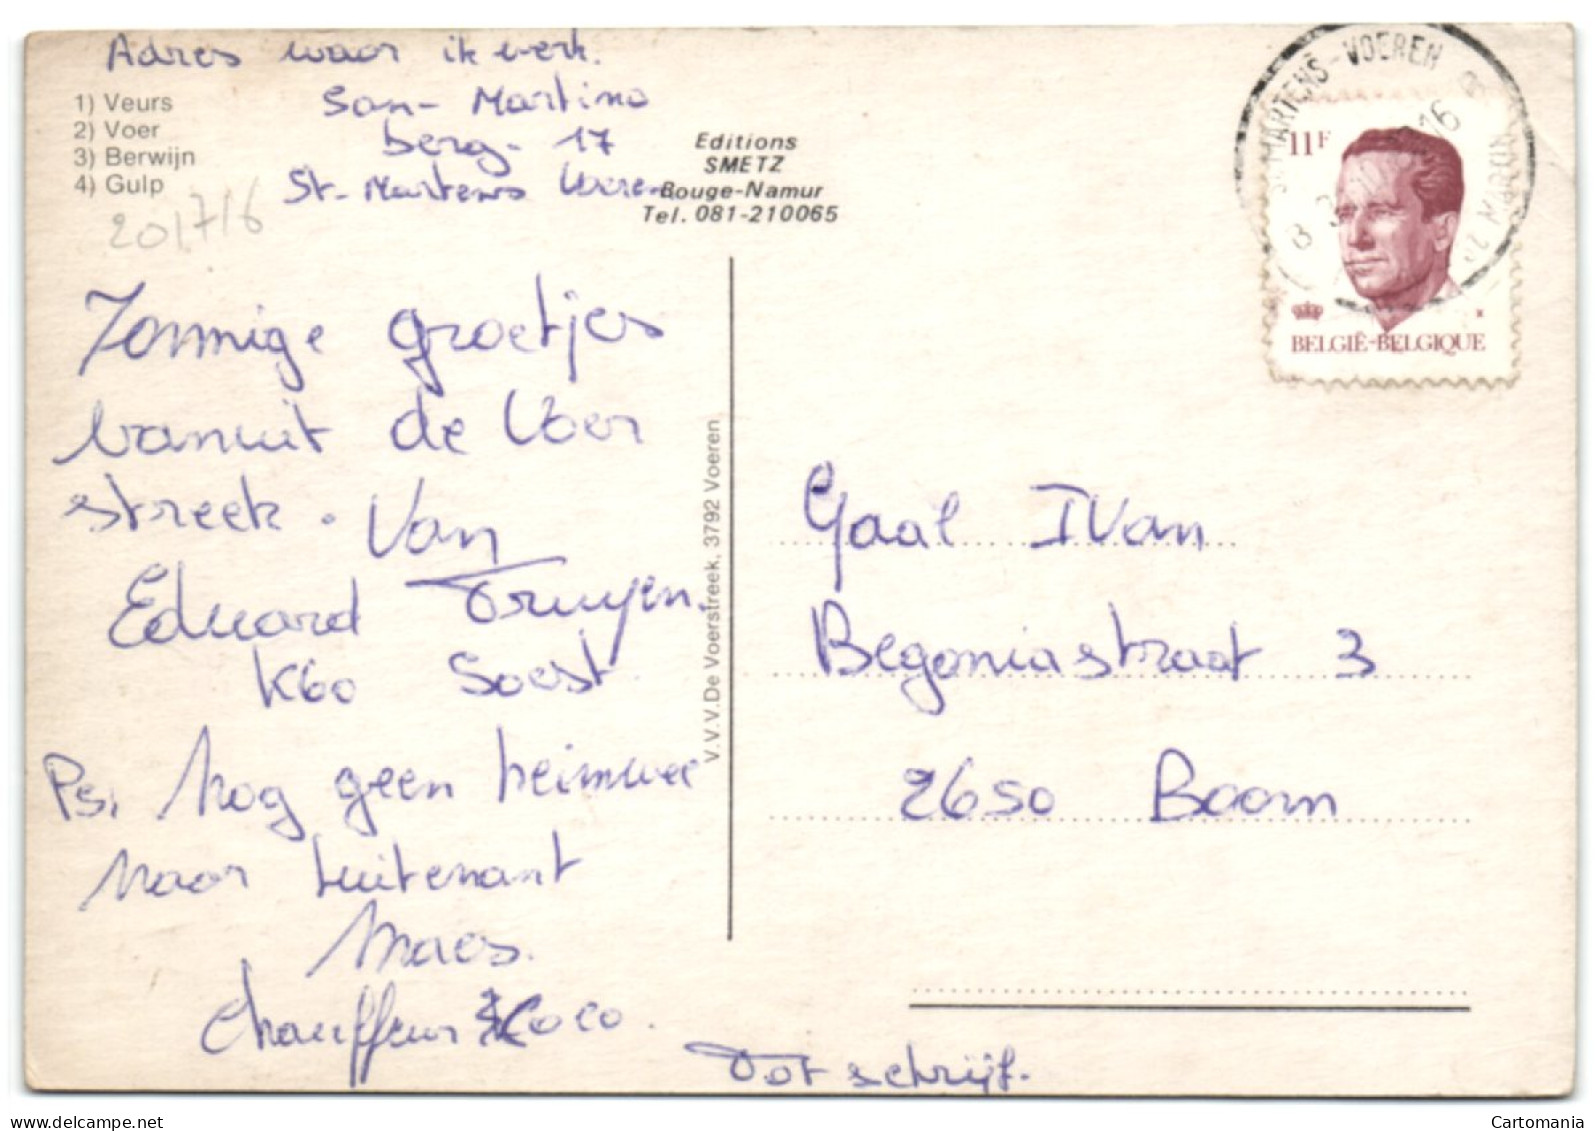 Adres waar ik werk.
San-Martino
berg- 17
St-Martens Voeren
1) Veurs
2) Voer
3) Berwijn
4) Gulp
201716
Editions
SMETZ
Bouge-Namur
Tel. 081-210065
Zonnige groetjes
vanuit de Voer
streek. Van
Eduard Truyen.
K60 Soest
Ps, Nog geen heimwee
naar Luitenant
Maes.
Chauffeur Coco.
Tot schrijf.
V.V.V. De Voerstreek, 3792 Voeren
MARTENS-VOEREN
16
11F
BELGIË-BELGIQUE
Gaal IVan
Begoniastraat 3
2650 Boom
Cartomania